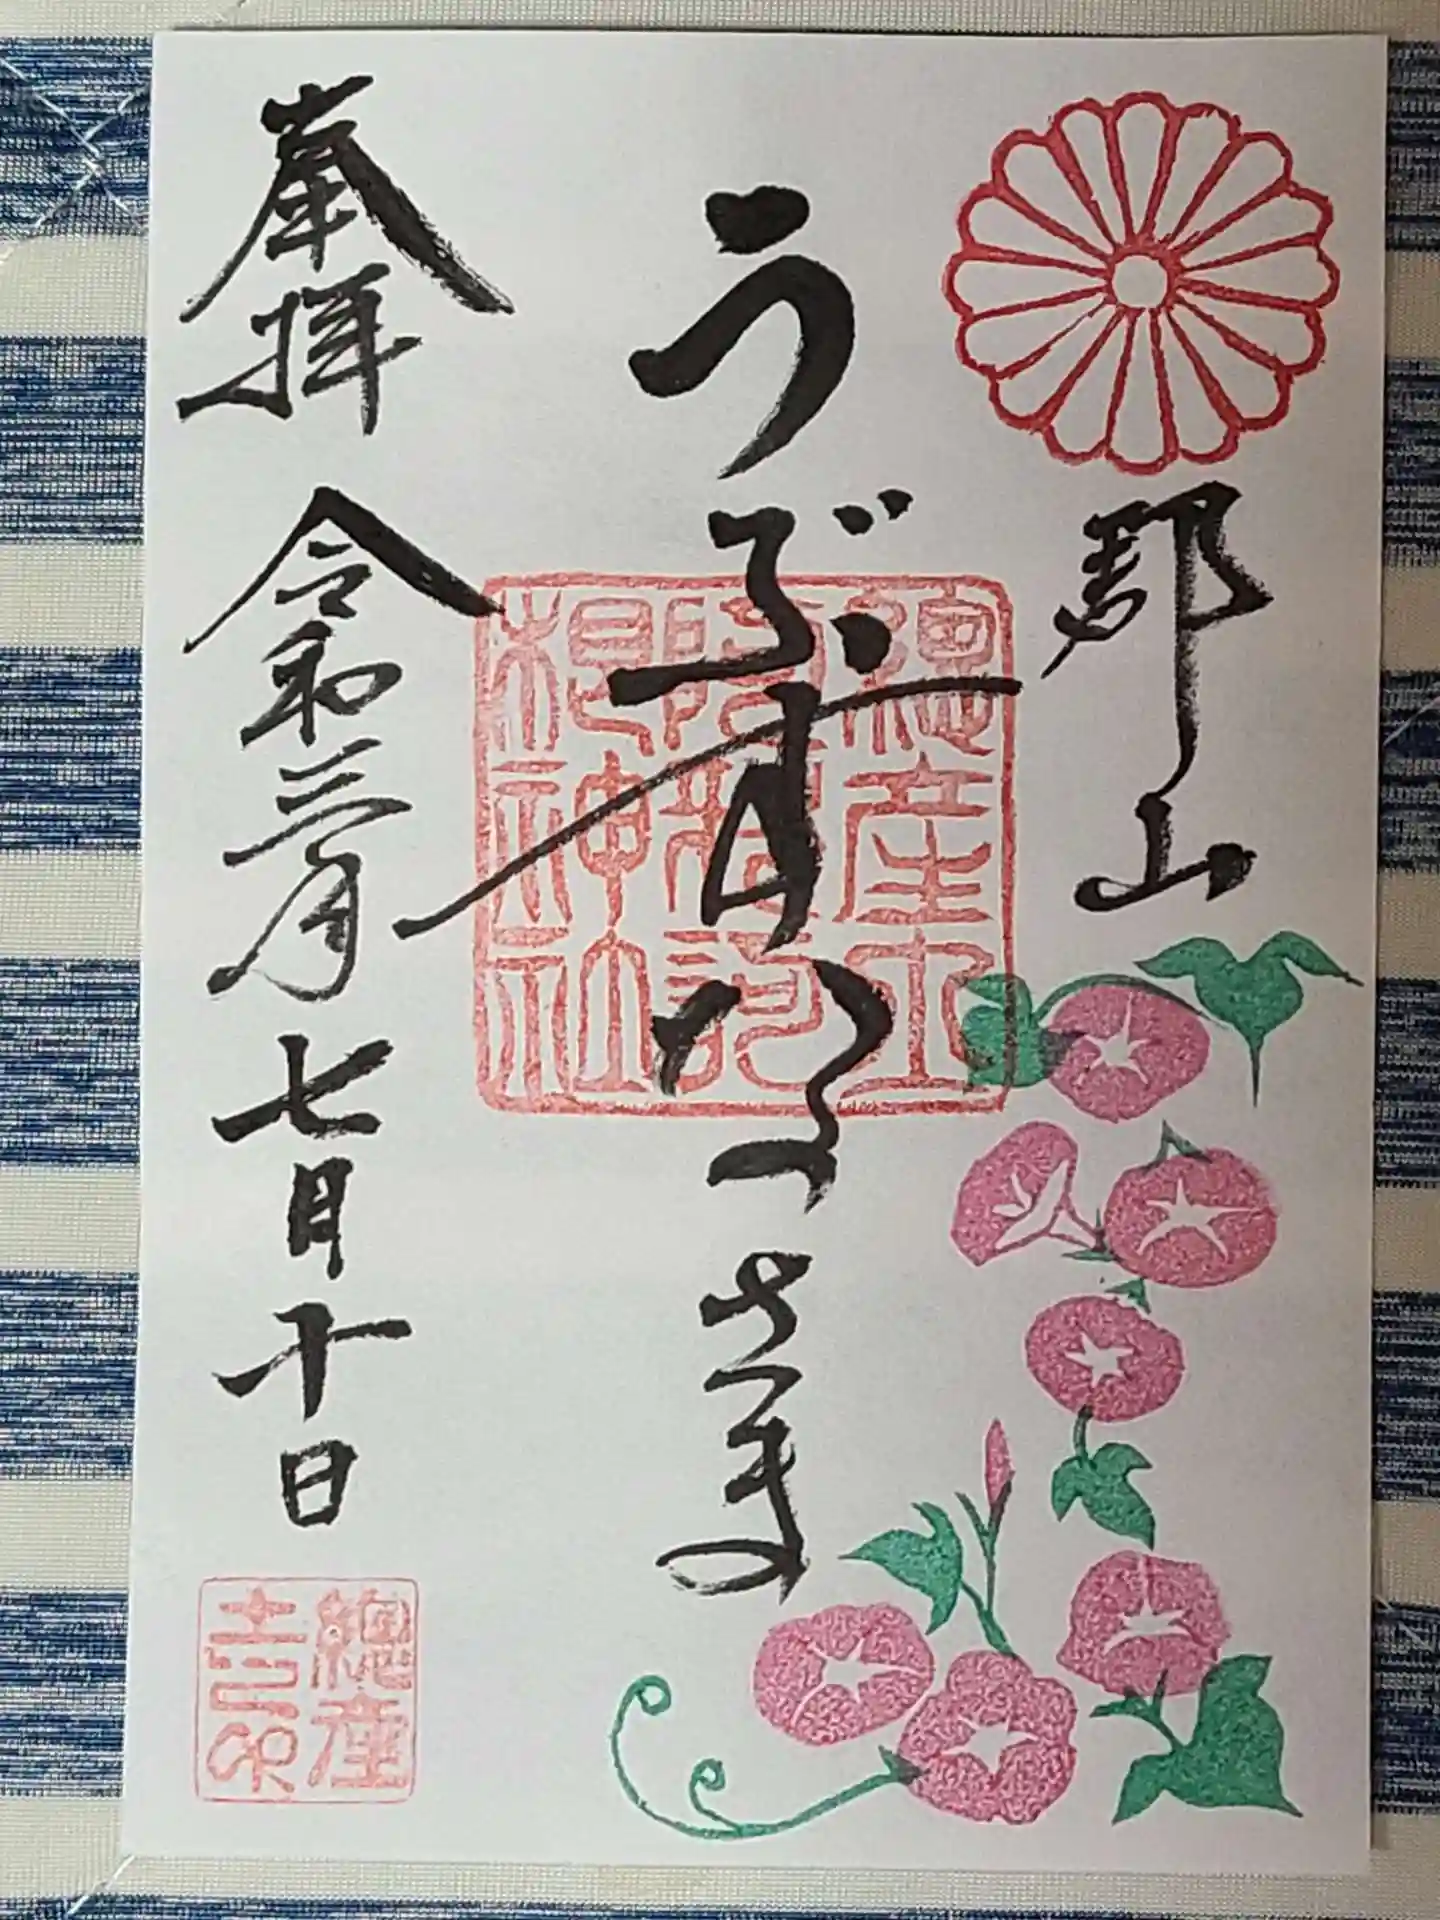 郡山
うぶすなさま
奉拝 令和三年七月十日
總産土
阿邪訶
根神社
總産
土之印